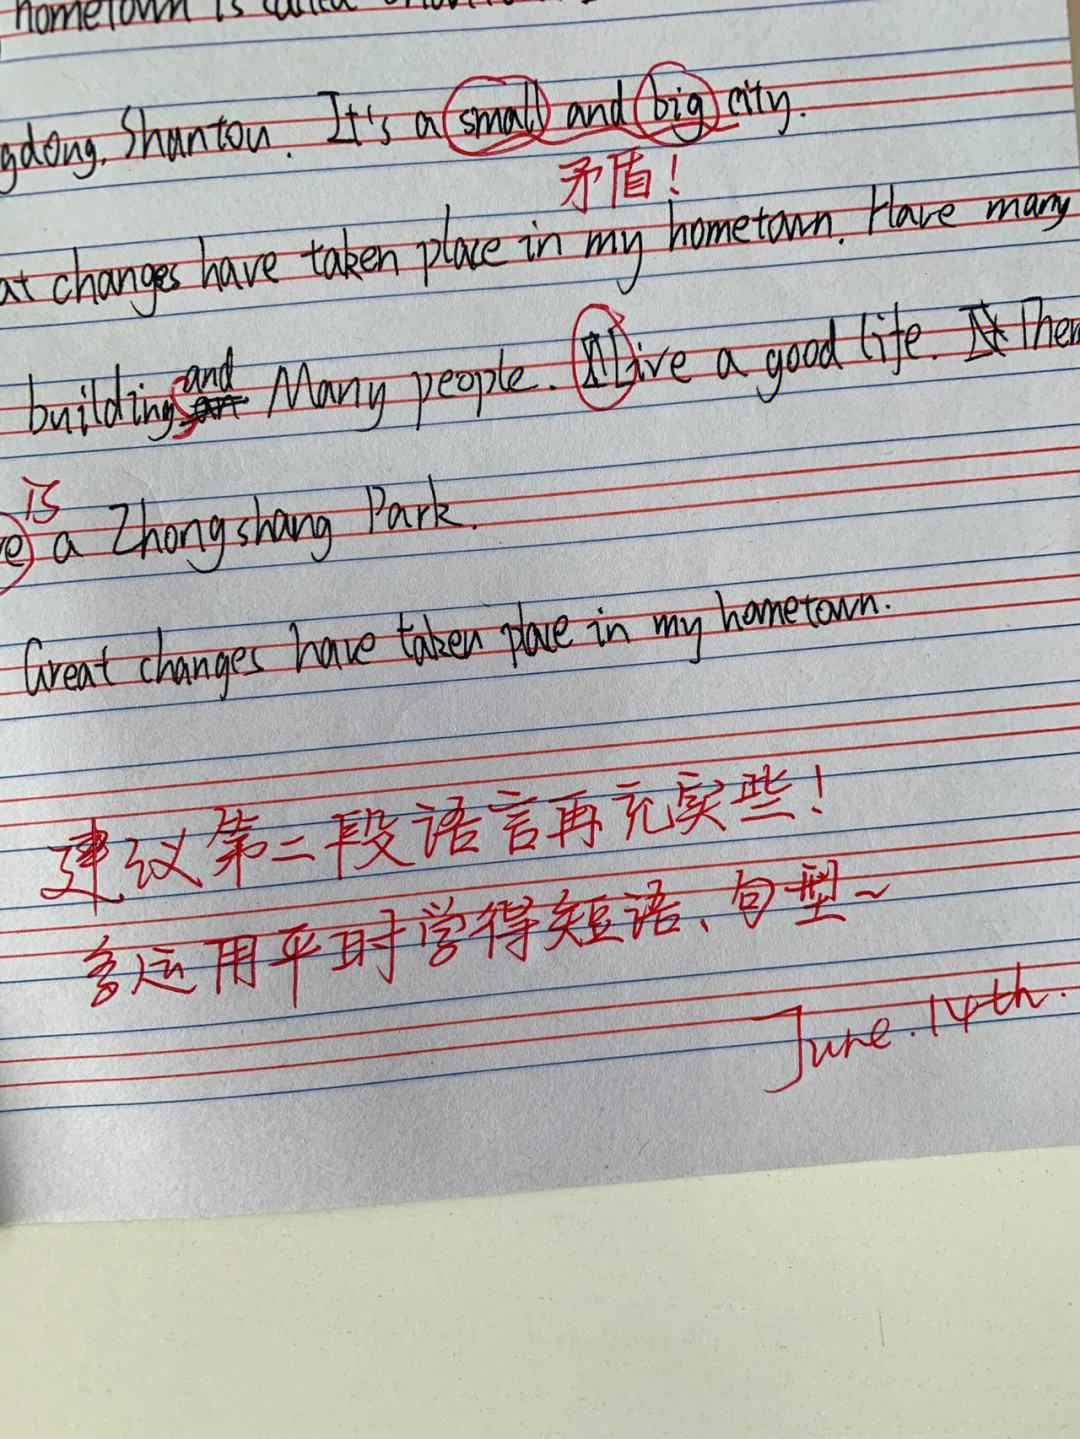 hometown is called
gdong, Shantou. It's a small and big city.
矛盾!
at changes have taken place in my hometown. Have many
buildings and Many people. Live a good life. Ther
is
e a Zhongshang Park.
Great changes have taken place in my hometown.
建议第二段语言再充实些!
多运用平时学得短语、句型~
June.14th.